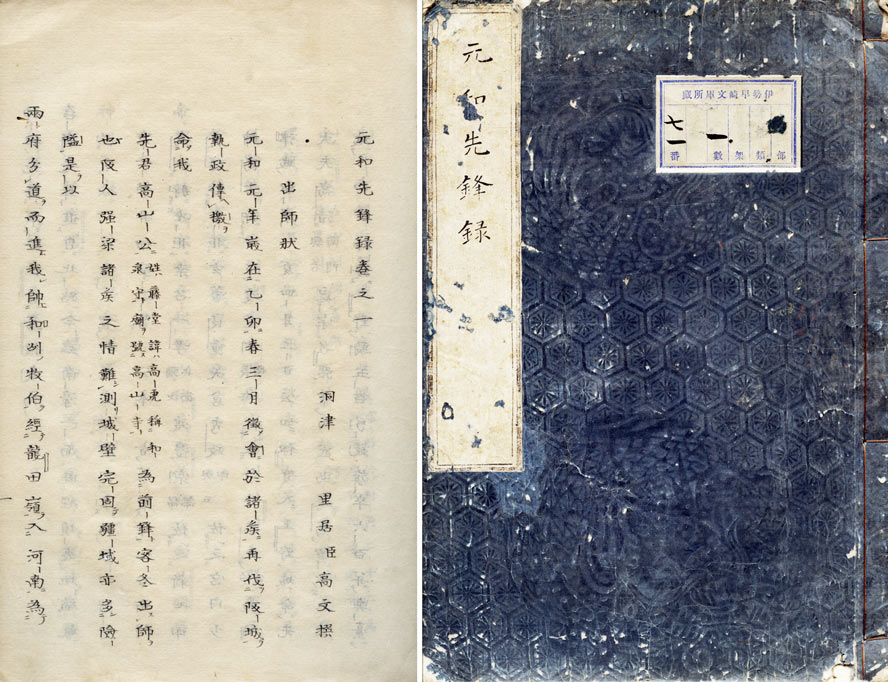 元和先鋒録
伊勢早崎文庫所藏
部 類 架 一 數 七一 番
元和先鋒録巻之一
洞津 里居臣高文撰
出師狀
元和元年歳在乙卯春三月徵會於諸矦再伐阪城
執政傳檄
命我
先君高山公姓藤堂諱高虎稱和泉守廟號高山寺為前鋒客冬出師
也阪人强梁諸矦之情難測城壁完固疆域亦多險
隘是以
兩府分道而進我帥和州牧伯經龍田嶺入河南為